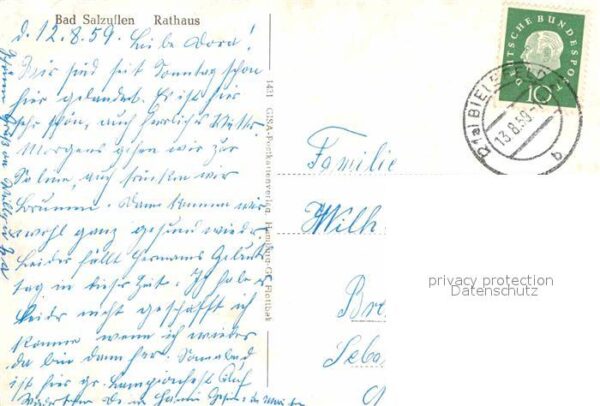 Bad Salzuflen Rathaus
d. 12.8.59. Liebe Dora!
Wir sind seit Sonntag schon
hier gelandet. Es ist hier
sehr schön, auch herrliches Wetter.
Morgens gehen wir zur
Saline, auch trinken wir
Brunnen. Dann kommen wir
wohl ganz gesund wieder.
Leider fällt Hermanns
tag in diese Zeit. Ich habe es
leider nicht geschafft ich
komme wenn ich wieder
da bin dann her. Sonnabend
ist hier gr. Lampionfest. Auf
1431 GISA-Postkartenverlag Hamburg-Gr. Flottbek
DEUTSCHE BUNDESPOST
10
(21a) BIELEFELD
13.8.59
b
Familie
Wilh
Bre
Seba
privacy protection
Datenschutz